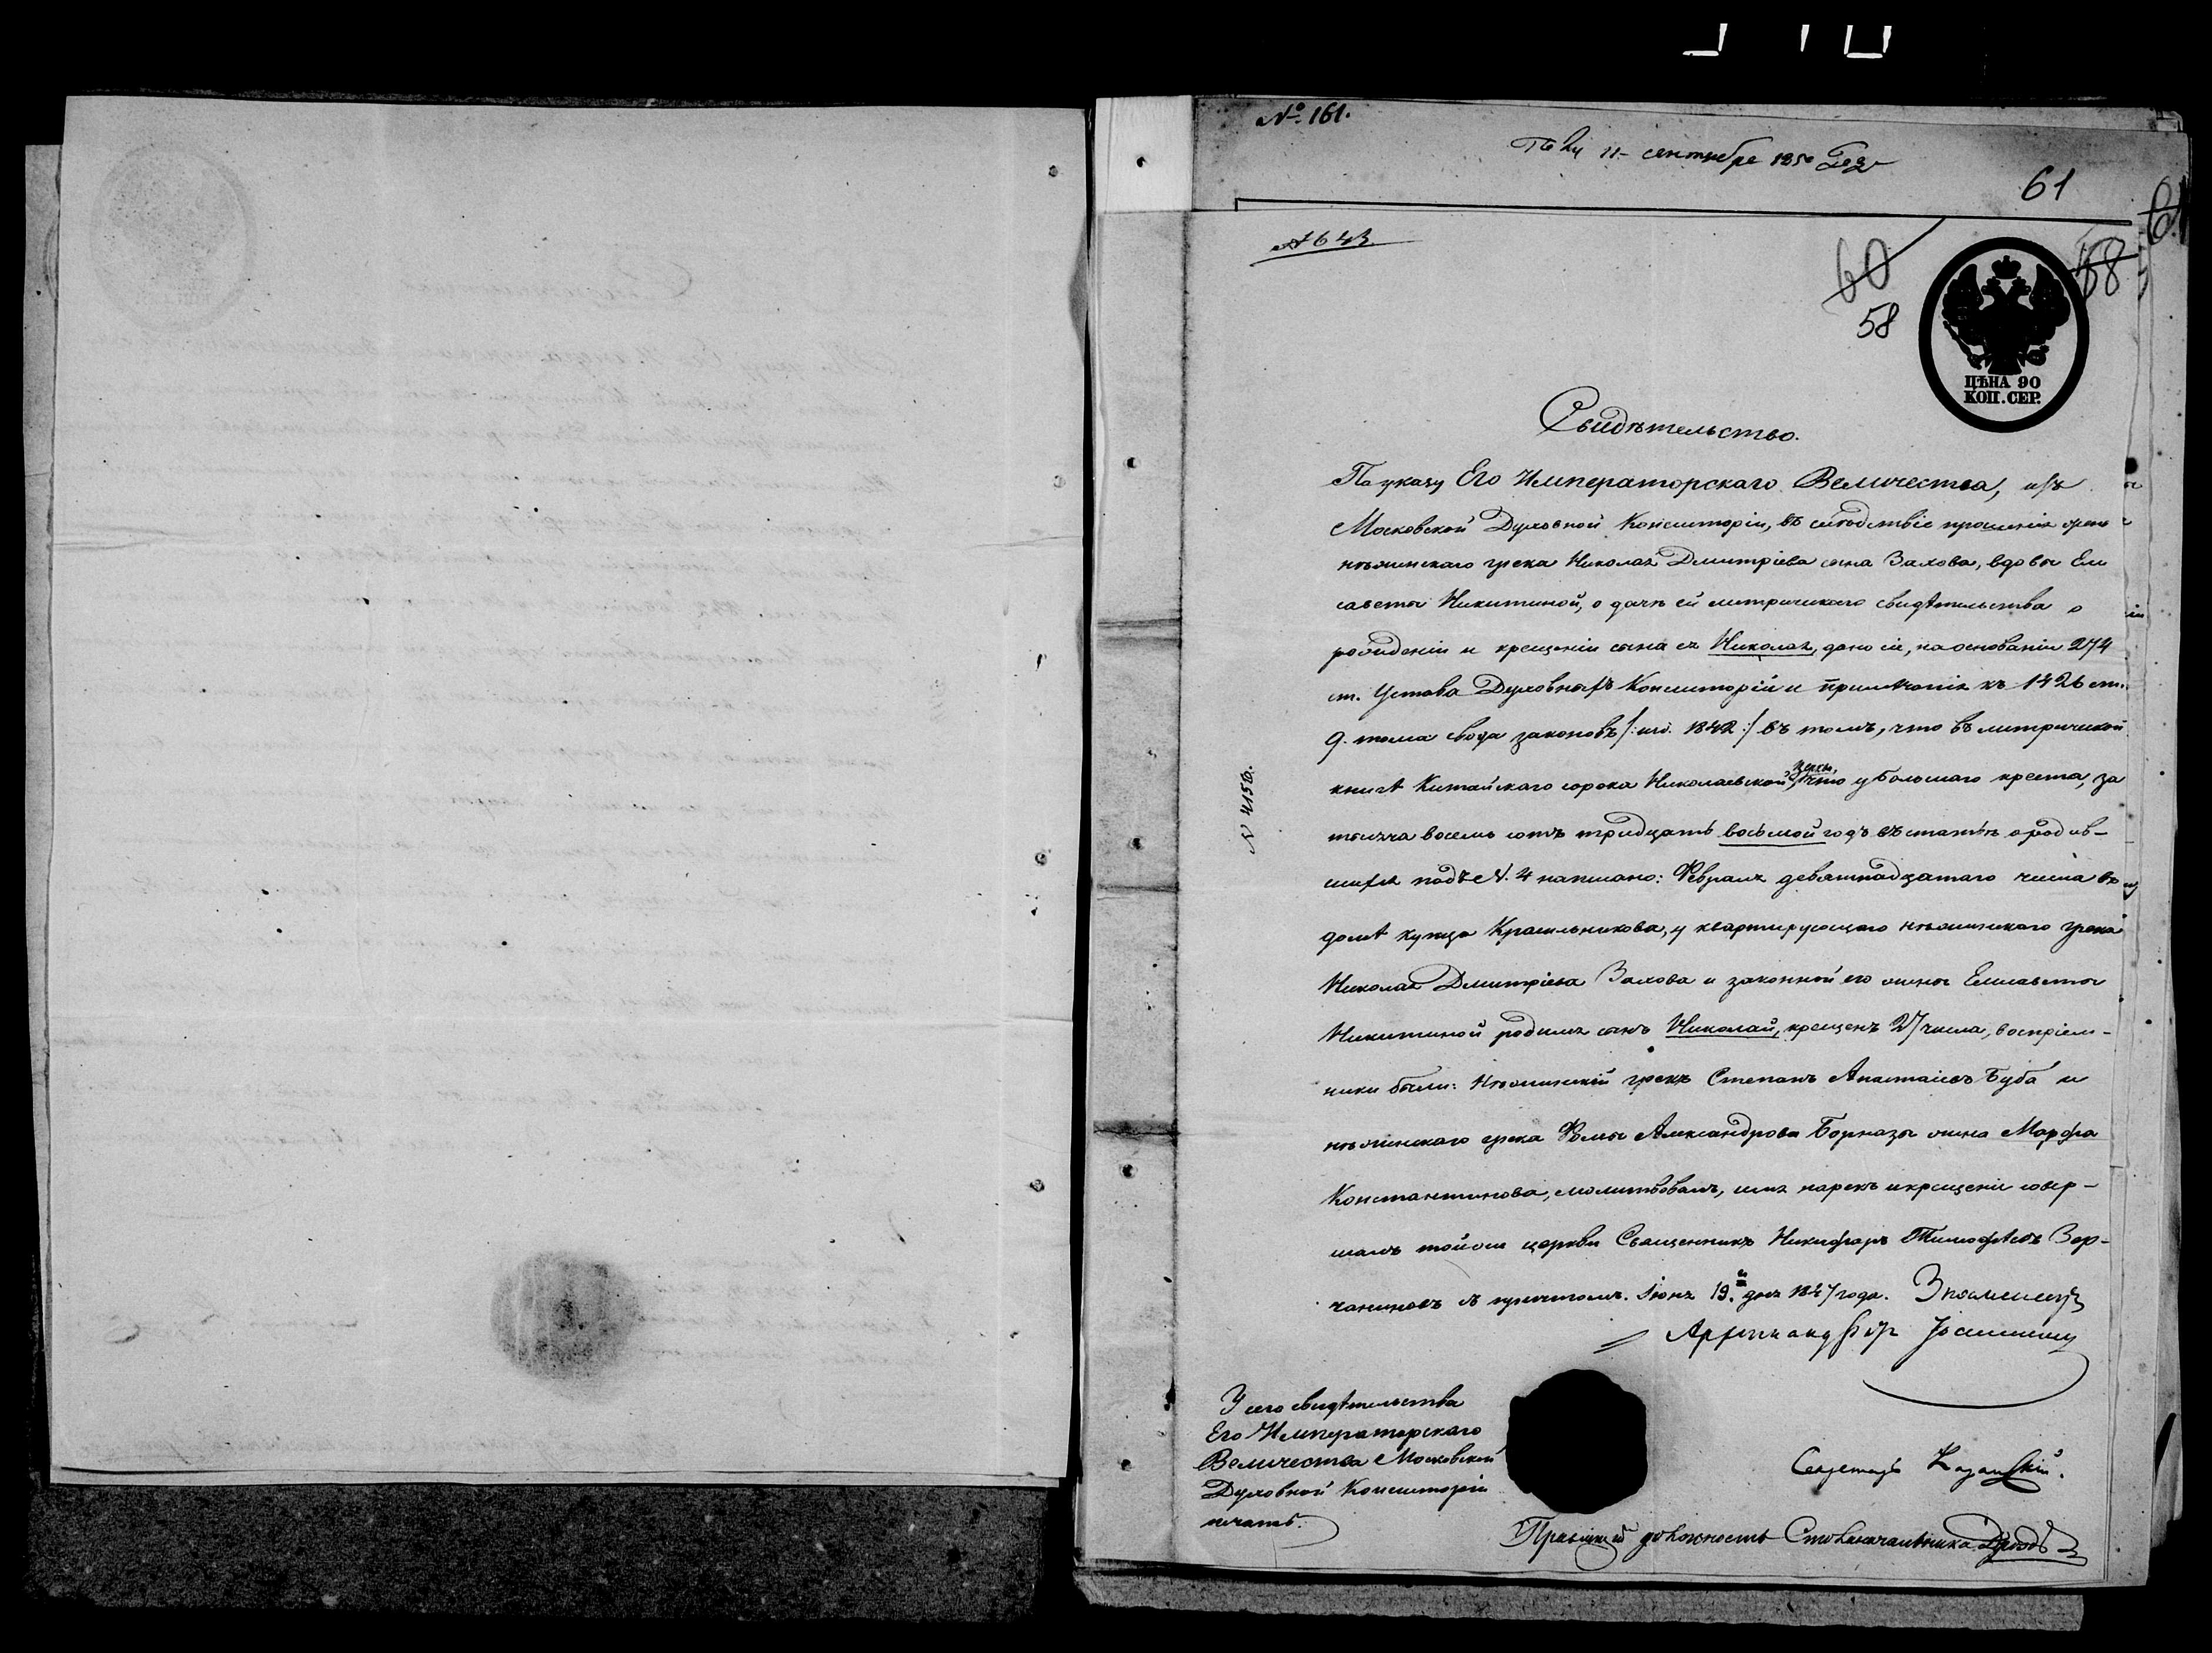 № 161.
11 сентября 1850
61
№ 643
60
58
58
61
ЦѢНА 90
КОП. СЕР.
Свидѣтельство.
По указу Его Императорскаго Величества, изъ
Московской Духовной Консисторіи, въ слѣдствіе прошенія
нѣжинскаго грека Николая Дмитріева сына Захова, вдовы Ели
саветы Никитиной, о дачѣ ей метрическаго свидѣтельства о
рожденіи и крещеніи сына ея Николая, дано сіе, на основаніи 274
ст. Устава Духовныхъ Консисторій и примѣчанія къ 1426 ст.
9. тома свода законовъ /: изд. 1842 :/ въ томъ, что въ метрической
книгѣ Китайскаго сорока Николаевской церкви, что у большаго креста, за
тысяча восемь сотъ тридцать восьмой годъ въ статьѣ о родив-
шихся подъ № 4 написано: Февраля девятнадцатаго числа въ
домѣ купца Красильникова, у квартирующаго нѣжинскаго грека
Николая Дмитріева Захова и законной его жены Елисаветы
Никитиной родился сынъ Николай, крещенъ 27 числа, воспріем-
ники были: Нѣжинскій грекъ Степанъ Анастасіевъ Буба и
нѣжинскаго грека Фомы Александрова Борназы жена Марфа
Константинова, молитвовалъ, имя нарекъ и крещеніе совер-
шалъ тойже церкви Священникъ Никифоръ Тимофѣевъ Зер-
чаниновъ съ причтомъ. Іюня 19.го дня 1847 года.
Архимандритъ
У сего свидѣтельства
Его Императорскаго
Величества Московской
Духовной Консисторіи
печать.
Секретарь Казанскій.
Правящій должность Столоначальника
№ 4156.